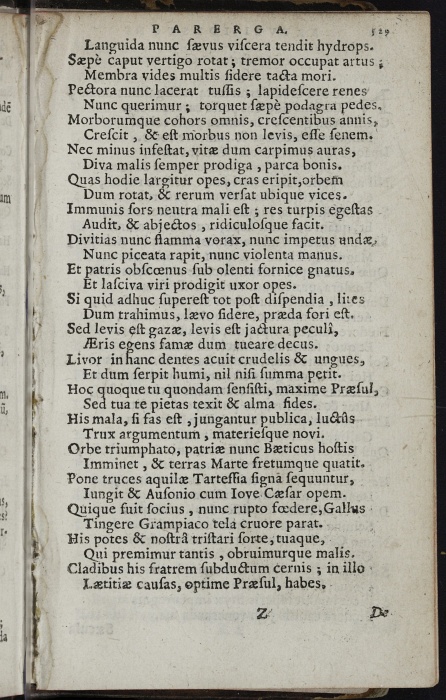 PARERGA. 529
Languida nunc ſævus viſcera tendit hydrops.
Sæpè caput vertigo rotat; tremor occupat artus;
Membra vides multis ſidere tacta mori.
Pectora nunc lacerat tuſſis; lapideſcere renes
Nunc querimur; torquet ſæpè podagra pedes.
Morborumque cohors omnis, creſcentibus annis,
Creſcit, & eſt morbus non levis, eſſe ſenem.
Nec minus infeſtat, vitæ dum carpimus auras,
Diva malis ſemper prodiga, parca bonis.
Quas hodie largitur opes, cras eripit, orbem
Dum rotat, & rerum verſat ubique vices.
Immunis ſors neutra mali eſt; res turpis egeſtas
Audit, & abjectos, ridiculoſque facit.
Divitias nunc flamma vorax, nunc impetus undæ,
Nunc piceata rapit, nunc violenta manus.
Et patris obſcœnus ſub olenti fornice gnatus,
Et laſciva viri prodigit uxor opes.
Si quid adhuc ſupereſt tot poſt diſpendia, lites
Dum trahimus, lævo ſidere, præda fori eſt.
Sed levis eſt gazæ, levis eſt jactura peculî,
Æris egens famæ dum tueare decus.
Livor in hanc dentes acuit crudelis & ungues,
Et dum ſerpit humi, nil niſi ſumma petit.
Hoc quoque tu quondam ſenſiſti, maxime Præſul,
Sed tua te pietas texit & alma fides.
His mala, ſi fas eſt, jungantur publica, luctûs
Trux argumentum, materieſque novi.
Orbe triumphato, patriæ nunc Bæticus hoſtis
Imminet, & terras Marte fretumque quatit.
Pone truces aquilæ Tarteſſia ſigna ſequuntur,
Iungit & Auſonio cum Iove Cæſar opem.
Quique fuit ſocius, nunc rupto fœdere, Gallus
Tingere Grampiaco tela cruore parat.
His potes & noſtrâ triſtari ſorte, tuaque,
Qui premimur tantis, obruimurque malis.
Cladibus his fratrem ſubductum cernis; in illo
Lætitiæ cauſas, optime Præſul, habes.
Z De